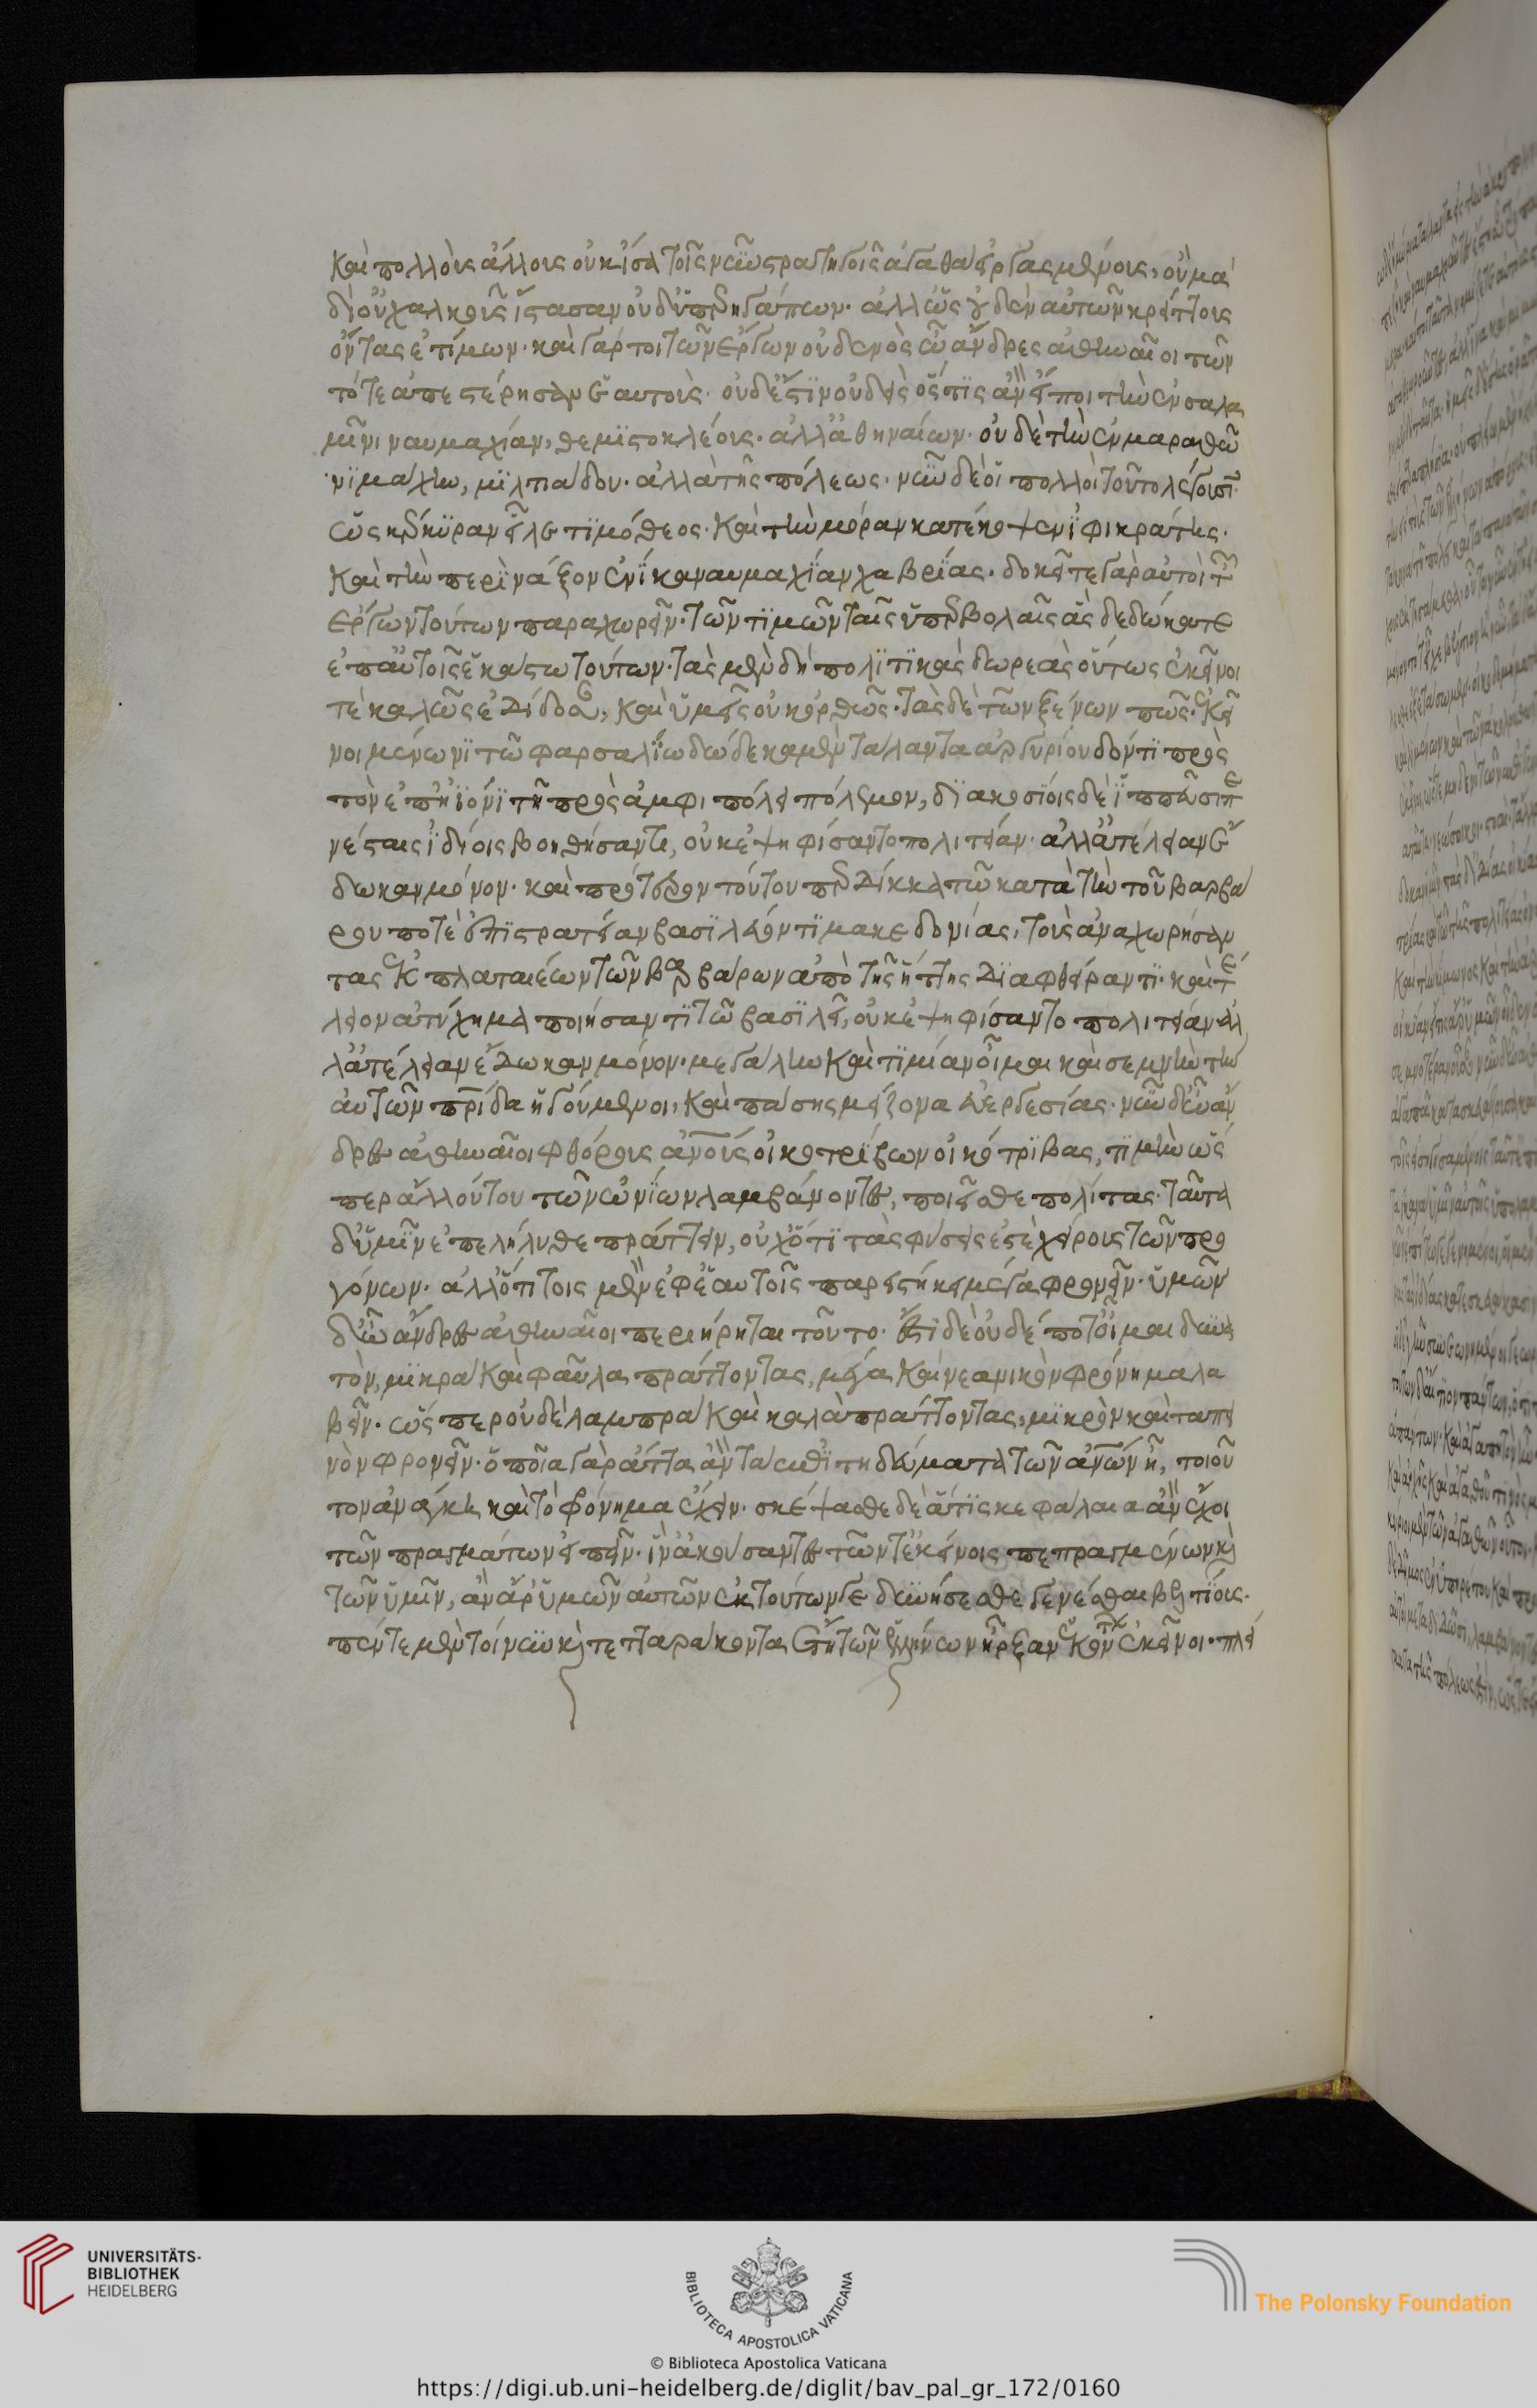 καὶ πολλοῖς ἄλλοις οὐκ ἴσα τοῖς νῦν στρατηγοῖς ἀγαθὰ εἰργασμένοις, οὐ μὰ
δί' οὐ χαλκοῦς ἵστασαν οὐδ' ὑπερηγάπων. ἀλλ' ὡς οὐδὲν αὐτῶν κρείττους
ὄντας ἐτίμων. καὶ γάρ τοι τῶν ἔργων οὐδενὸς ὦ ἄνδρες ἀθηναῖοι τῶν
τότε ἀπεστέρησαν ἑαυτούς. οὐδ' ἔστιν οὐδεὶς ὅστις ἂν εἴποι τὴν ἐν σαλα
μῖνι ναυμαχίαν, θεμιστοκλέους. ἀλλ' ἀθηναίων. οὐδὲ τὴν ἐν μαραθῶ
νι μάχην, μιλτιάδου. ἀλλὰ τῆς πόλεως. νῦν δὲ οἱ πολλοὶ τοῦτο λέγουσιν.
ὡς κέρκυραν εἷλε τιμόθεος. καὶ τὴν μόραν κατέκοψεν ἰφικράτης.
καὶ τὴν περὶ νάξον ἐνίκα ναυμαχίαν χαβρίας. δοκεῖτε γὰρ αὐτοὶ τῶν
ἔργων τούτων παραχωρεῖν. τῶν τιμῶν ταῖς ὑπερβολαῖς ἃς δεδώκατε
ἐπ' αὐτοῖς ἑκάστω τούτων. τὰς μὲν δὴ πολιτικὰς δωρεὰς οὕτως ἐκεῖνοι
τὲ καλῶς ἐδίδοσαν, καὶ ὑμεῖς οὐκ ὀρθῶς. τὰς δὲ τῶν ξένων πῶς. ἐκεῖ
νοι μένωνι τῶ φαρσαλίω δώδεκα μὲν τάλαντα ἀργυρίου δόντι πρὸς
τὸν ἐπ' ἠϊόνι τῆ πρὸς ἀμφιπόλει πόλεμον, διακοσίοις δὲ ἱππεῦσι πε
νέσταις ἰδίοις βοηθήσαντι, οὐκ ἐψηφίσαντο πολιτείαν. ἀλλ' ἀτέλειαν ἔ
δωκαν μόνον. καὶ πρότερον τούτου περδίκκα τῶ κατὰ τὴν τοῦ βαρβά
ρου ποτὲ ἐπιστρατείαν βασιλεύοντι μακεδονίας, τοὺς ἀναχωρήσαν
τας ἐκ πλαταιέων τῶν βαρβάρων ἀπὸ τῆς ἥττης διαφθείραντι. καὶ τέ
λειον ἀτύχημα ποιήσαντι τῶ βασιλεῖ, οὐκ ἐψηφίσαντο πολιτείαν. ἀλ
λ' ἀτέλειαν ἔδωκαν μόνον. μεγάλην καὶ τιμίαν οἶμαι καὶ σεμνὴν τὴν
αὑτῶν πρίδα ἡγούμενοι, καὶ πάσης μείζονα εὐεργεσίας. νῦν δ' ὦ ἄν
δρες ἀθηναῖοι φθόρους ἀνους οἰκοτρίβων οἰκότριβας, τιμὴν ὥσ
περ ἄλλου του τῶν ὠνίων λαμβάνοντες, ποιεῖσθε πολίτας. ταῦτα
δ' ὑμῖν ἐπελήλυθε πράττειν, οὐχ ὅτι τὰς φύσεις ἐστὲ χείρους τῶν προ
γόνων. ἀλλ' ὅτι τοῖς μὲν ἐφ' ἑαυτοῖς παρειστήκει μέγα φρονεῖν. ὑμῶν
δ' ὦ ἄνδρες ἀθηναῖοι περιήρηται τοῦτο. ἔστι δὲ οὐδέποτ' οἶμαι δυνα
τὸν, μικρὰ καὶ φαῦλα πράττοντας, μέγα καὶ νεανικὸν φρόνημα λα
βεῖν. ὥσπερ οὐδὲ λαμπρὰ καὶ καλὰ πράττοντας, μικρὸν καὶ ταπει
νὸν φρονεῖν. ὁποῖα γὰρ ἄττα ἂν τὰ ἐπιτηδεύματα τῶν ἀνων ἦ, τοιοῦ
τον ἀνάγκη καὶ τὸ φρόνημα ἔχειν. σκέψασθε δὲ ἅ τις κεφάλαια ἂν ἔχοι
τῶν πραγμάτων εἰπεῖν. ἵν' ἀκούσαντες τῶν τ' ἐκείνοις πεπραγμένων καὶ
τῶν ὑμῖν, ἂν ἄρ' ὑμῶν αὐτῶν ἐκ τούτων γε δυνήσεσθε γενέσθαι βελτίους.
πέντε μὲν τοίνυν καὶ τετταράκοντα ἔτη τῶν ἑλλήνων ἦρξαν ἑκόντων ἐκεῖνοι. πλεί
UNIVERSITÄTS-
BIBLIOTHEK
HEIDELBERG
BIBLIOTECA APOSTOLICA VATICANA
The Polonsky Foundation
© Biblioteca Apostolica Vaticana
https://digi.ub.uni-heidelberg.de/diglit/bav_pal_gr_172/0160